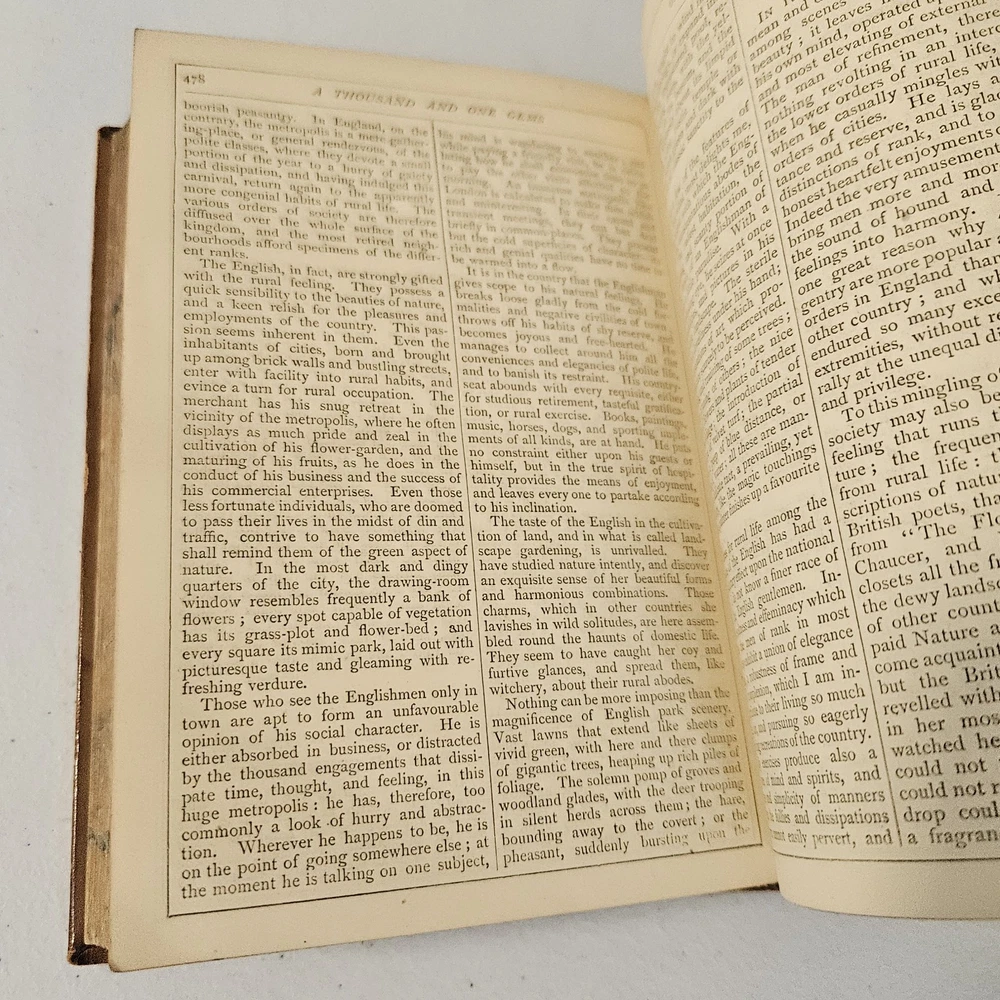 478
A THOUSAND AND ONE GEMS
boorish peasantry. In England, on the
contrary, the metropolis is a mere gather-
ing-place, or general rendezvous, of the
polite classes, where they devote a small
portion of the year to a hurry of gaiety
and dissipation, and having indulged this
carnival, return again to the apparently
more congenial habits of rural life. The
various orders of society are therefore
diffused over the whole surface of the
kingdom, and the most retired neigh-
bourhoods afford specimens of the differ-
ent ranks.
The English, in fact, are strongly gifted
with the rural feeling. They possess a
quick sensibility to the beauties of nature,
and a keen relish for the pleasures and
employments of the country. This pas-
sion seems inherent in them. Even the
inhabitants of cities, born and brought
up among brick walls and bustling streets,
enter with facility into rural habits, and
evince a turn for rural occupation. The
merchant has his snug retreat in the
vicinity of the metropolis, where he often
displays as much pride and zeal in the
cultivation of his flower-garden, and the
maturing of his fruits, as he does in the
conduct of his business and the success of
his commercial enterprises. Even those
less fortunate individuals, who are doomed
to pass their lives in the midst of din and
traffic, contrive to have something that
shall remind them of the green aspect of
nature. In the most dark and dingy
quarters of the city, the drawing-room
window resembles frequently a bank of
flowers ; every spot capable of vegetation
has its grass-plot and flower-bed ; and
every square its mimic park, laid out with
picturesque taste and gleaming with re-
freshing verdure.
Those who see the Englishmen only in
town are apt to form an unfavourable
opinion of his social character. He is
either absorbed in business, or distracted
by the thousand engagements that dissi-
pate time, thought, and feeling, in this
huge metropolis : he has, therefore, too
commonly a look of hurry and abstrac-
tion. Wherever he happens to be, he is
on the point of going somewhere else ; at
the moment he is talking on one subject,
his mind is
while paying a
morning. An
and uninteresting. In
transient meetings, they
briefly in common-places. They
but the cold superficies of character
rich and genial qualities have no time
be warmed into a flow.
It is in the country that the Englishman
gives scope to his natural feelings. He
breaks loose gladly from the cold for-
malities and negative civilities of town
throws off his habits of shy reserve, and
becomes joyous and free-hearted. He
manages to collect around him all the
conveniences and elegancies of polite life,
and to banish its restraint. His country-
seat abounds with every requisite, either
for studious retirement, tasteful gratifica-
tion, or rural exercise. Books, paintings,
music, horses, dogs, and sporting imple-
ments of all kinds, are at hand. He puts
no constraint either upon his guests or
himself, but in the true spirit of hospi-
tality provides the means of enjoyment,
and leaves every one to partake according
to his inclination.
The taste of the English in the cultiva-
tion of land, and in what is called land-
scape gardening, is unrivalled. They
have studied nature intently, and discover
an exquisite sense of her beautiful forms
and harmonious combinations. Those
charms, which in other countries she
lavishes in wild solitudes, are here assem-
bled round the haunts of domestic life.
They seem to have caught her coy and
furtive glances, and spread them, like
witchery, about their rural abodes.
Nothing can be more imposing than the
magnificence of English park scenery.
Vast lawns that extend like sheets of
vivid green, with here and there clumps
of gigantic trees, heaping up rich piles of
foliage. The solemn pomp of groves and
woodland glades, with the deer trooping
in silent herds across them ; the hare,
bounding away to the covert ; or the
pheasant, suddenly bursting upon the
features of
delights me,
the Eng-
abodes of
portion of
Englishman of
With a
he seizes at once
pictures in his
The sterile
under his hand;
of art which pro-
to be perceived.
of some trees ;
of others ; the nice
plants of tender
introduction of
turf ; the partial
blue distance, or
all these are man-
a prevailing, yet
like the magic touchings
finishes up a favourite
for rural life among the
the English has had a
effect upon the national
know a finer race of
English gentlemen. In-
and effeminacy which
men of rank in most
a union of elegance
robustness of frame and
which I am in-
to their living so much
and pursuing so eagerly
of the country.
produce also a
mind and spirits, and
simplicity of manners
follies and dissipations
easily pervert, and
mean and
among scenes
beauty ; it leaves
his own mind, operated up
and most elevating of external
The man of refinement, there
nothing revolting in an interc
the lower orders of rural life,
when he casually mingles wit
orders of cities. He lays a
tance and reserve, and is glad
distinctions of rank, and to
honest heartfelt enjoyments o
Indeed the very amusement
bring men more and mor
the sound of hound and
feelings into harmony.
one great reason why
gentry are more popular a
orders in England than
other country ; and w
endured so many exce
extremities, without re
rally at the unequal di
and privilege.
To this mingling of
society may also be
feeling that runs t
ture ; the frequen
from rural life : th
scriptions of natu
British poets, tha
from "The Fl
Chaucer, and
closets all the fr
the dewy landsc
of other count
paid Nature a
come acquaint
but the Brit
revelled with
in her mos
watched he
could not
could not r
drop coul
a fragran